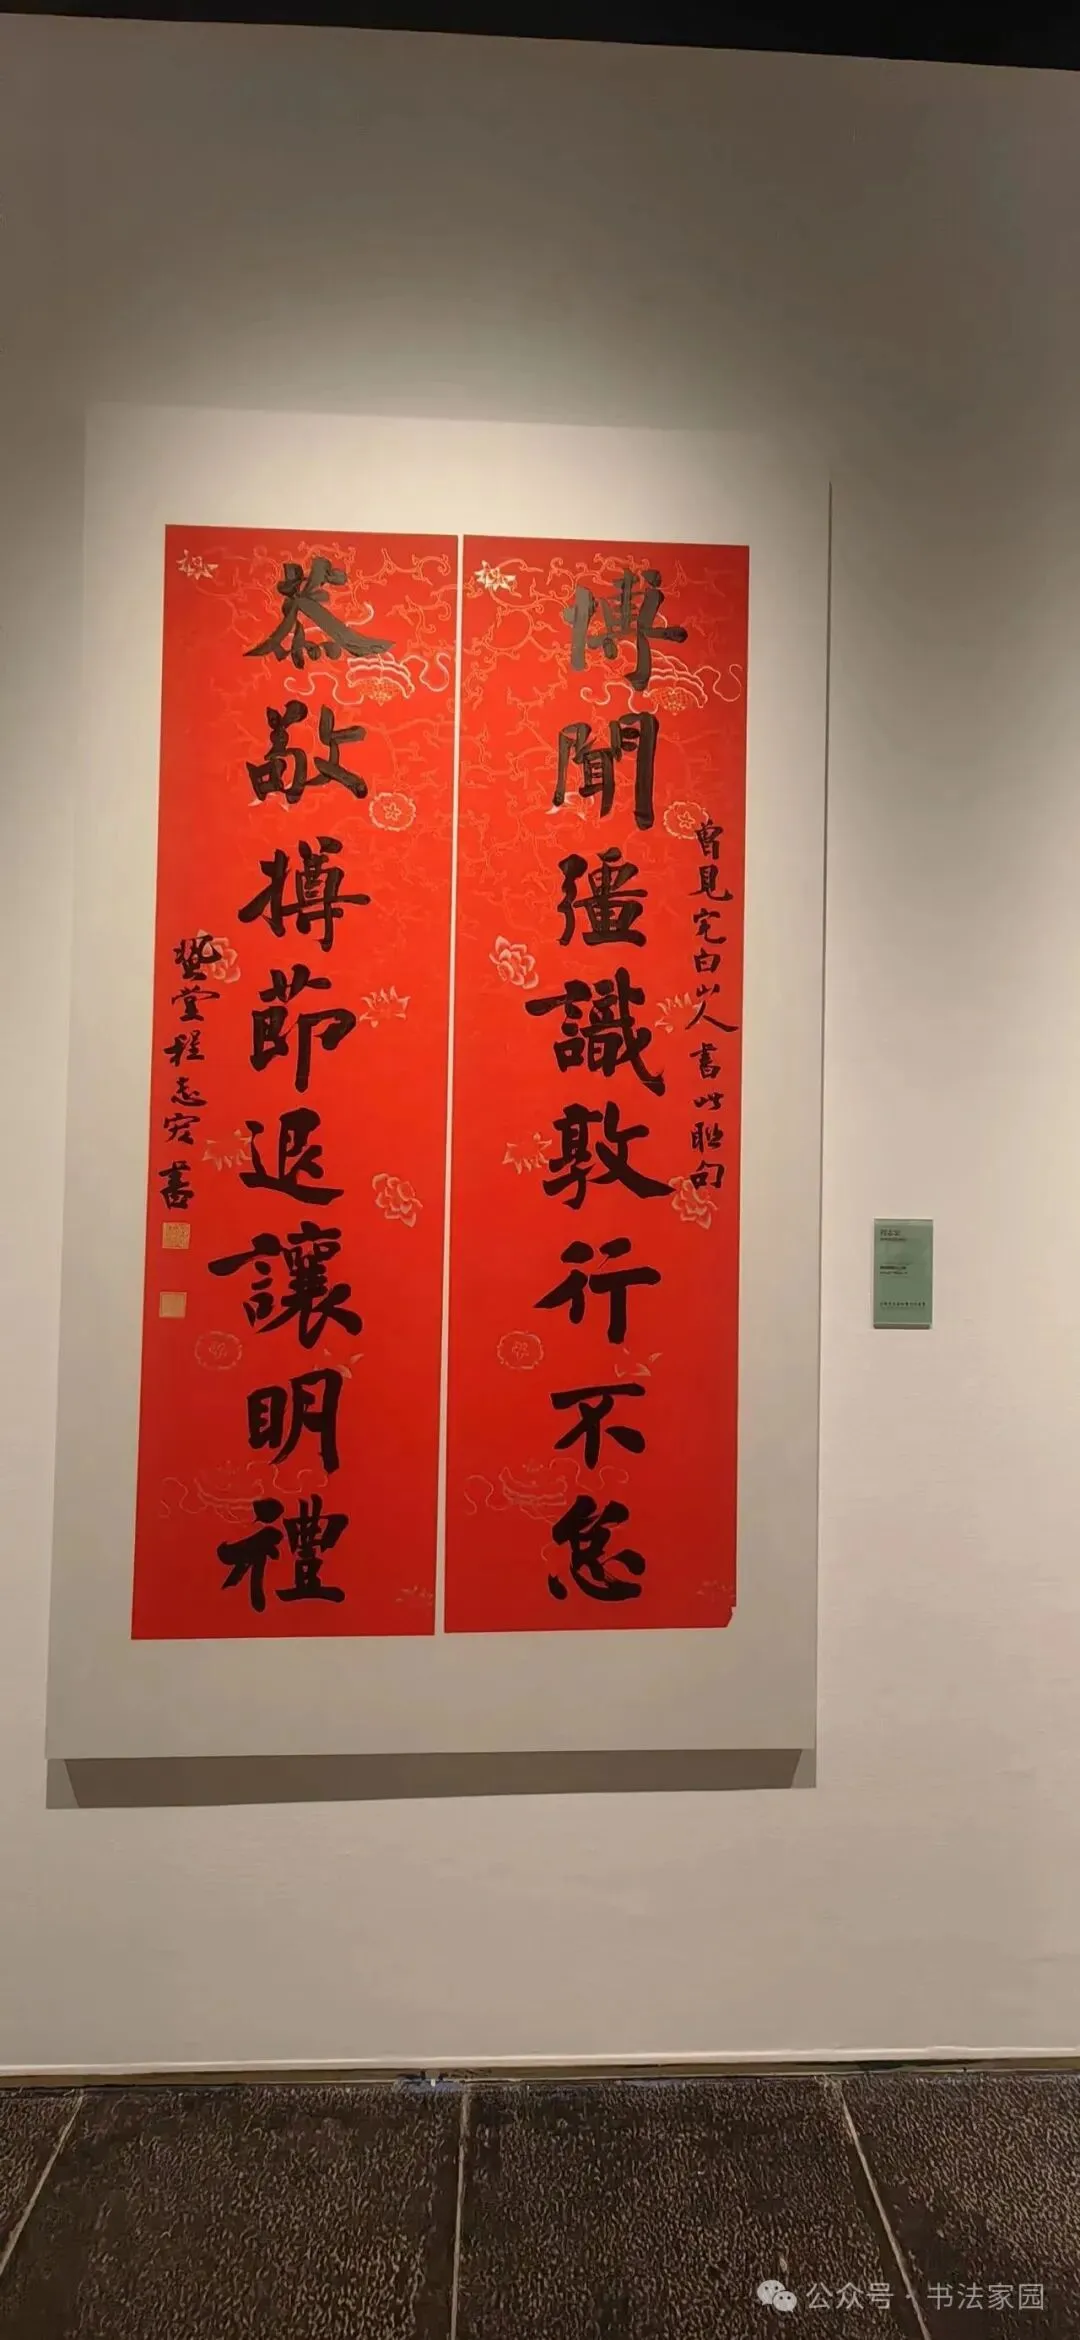 博聞彊識敦行不怠
曾見完白山人書此聯句
恭敬撙節退讓明禮
堂程志宏書
公众号 · 书法家园